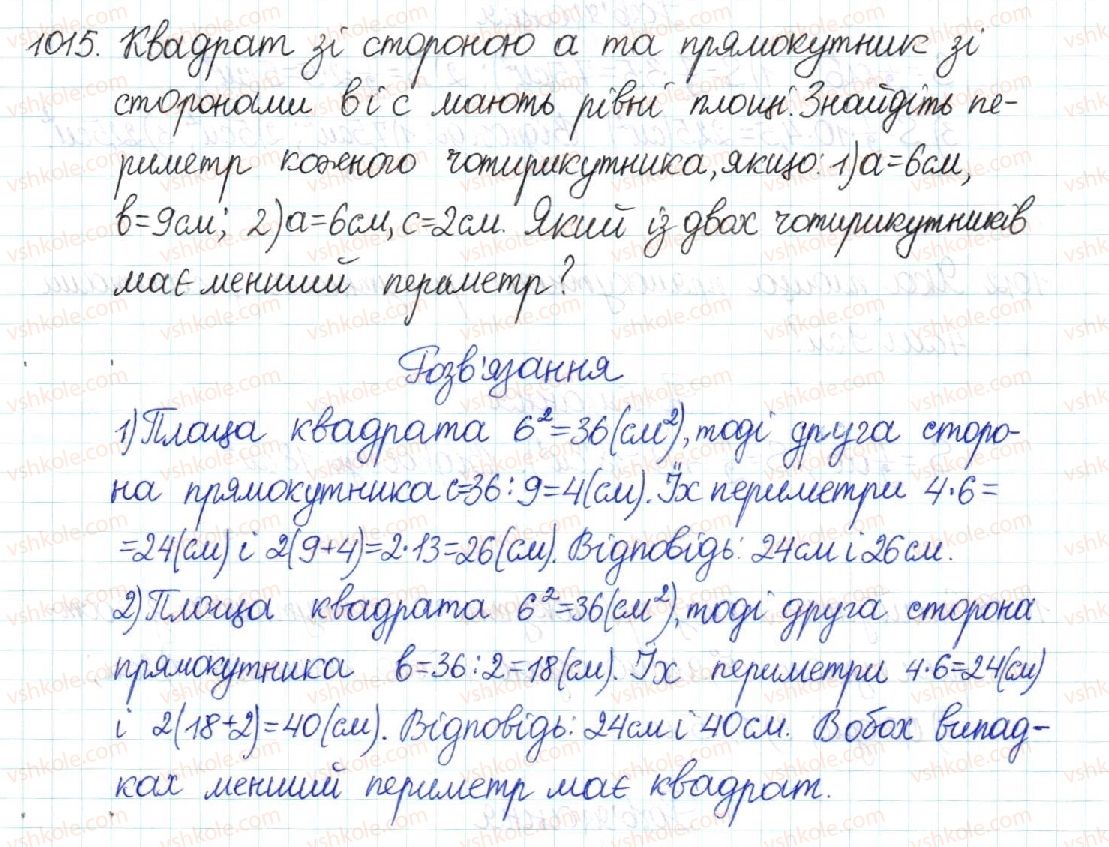 1015. Квадрат зі стороною a та прямокутник зі
сторонами в і с мають рівні площі. Знайдіть пе-
риметр кожного чотирикутника, якщо: 1) a=6см,
в=9см; 2) a=6см, с=2см. Який із двох чотирикутників
має менший периметр?
Розв'язання
1) Площа квадрата 6²=36(см²), тоді друга сторо-
на прямокутника с=36:9=4(см). Їх периметри 4·6=
=24(см) і 2(9+4)=2·13=26(см). Відповідь: 24см і 26см.
2) Площа квадрата 6²=36(см²), тоді друга сторона
прямокутника в=36:2=18(см). Їх периметри 4·6=24(см)
і 2(18+2)=40(см). Відповідь: 24см і 40см. В обох випад-
ках менший периметр має квадрат.